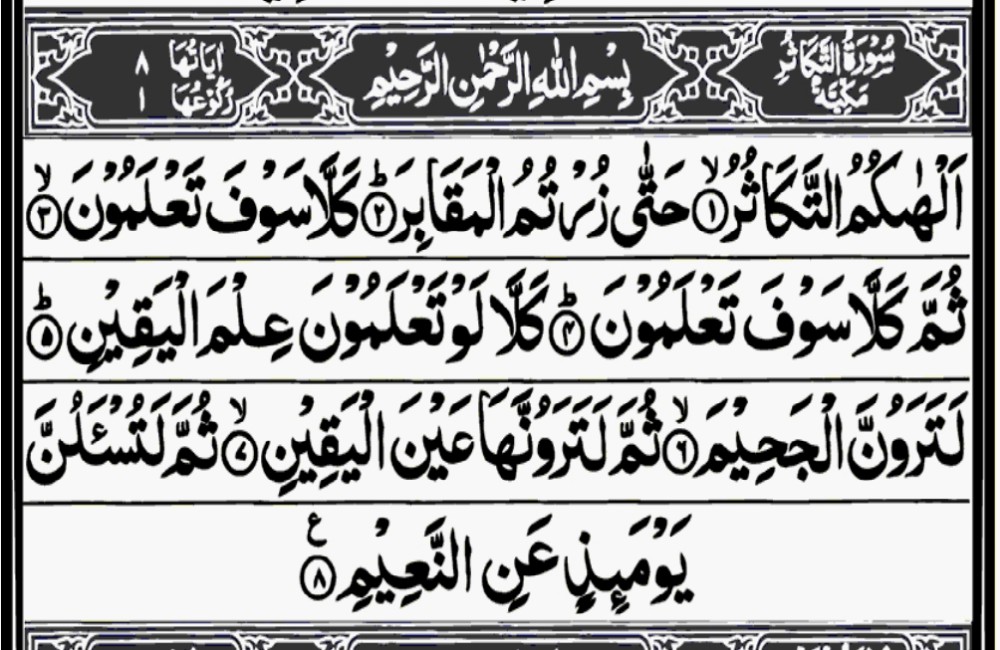 سُوْرَةُ التَّكَاثُرِ مَكِّيَّةٌ بِسْمِ اللّٰهِ الرَّحْمٰنِ الرَّحِیْمِ اٰیَاتُهَا ۸ رُكُوْعُهَا ۱
اَلْهٰىكُمُ التَّكَاثُرُۙ‏﴿۱﴾ حَتّٰى زُرْتُمُ الْمَقَابِرَؕ‏﴿۲﴾ كَلَّا سَوْفَ تَعْلَمُوْنَۙ‏﴿۳﴾
ثُمَّ كَلَّا سَوْفَ تَعْلَمُوْنَؕ‏﴿۴﴾ كَلَّا لَوْ تَعْلَمُوْنَ عِلْمَ الْیَقِیْنِؕ‏﴿۵﴾
لَتَرَوُنَّ الْجَحِیْمَۙ‏﴿۶﴾ ثُمَّ لَتَرَوُنَّهَا عَیْنَ الْیَقِیْنِۙ‏﴿۷﴾ ثُمَّ لَتُسْـَٔلُنَّ
یَوْمَىِٕذٍ عَنِ النَّعِیْمِ‏﴿۸﴾ ع